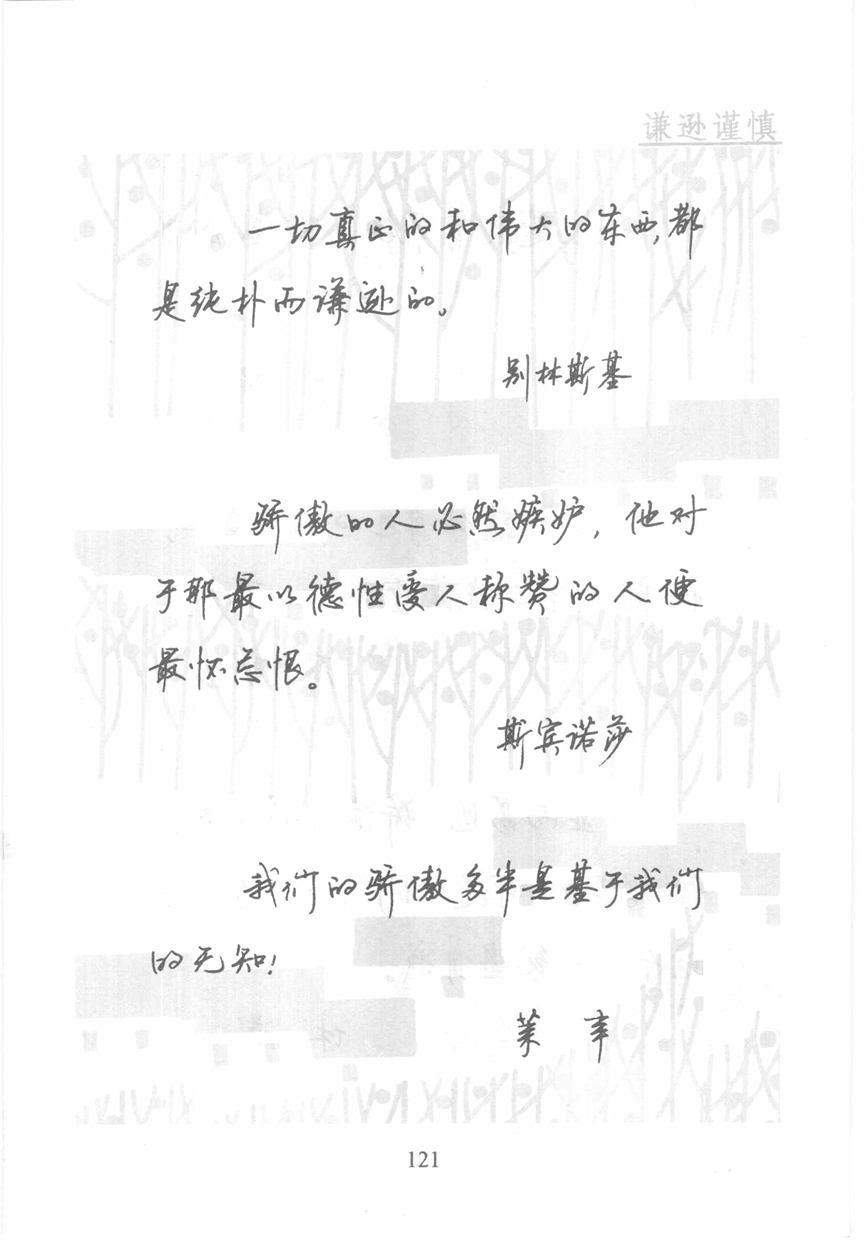 谦逊谨慎
一切真正的和伟大的东西,都
是纯朴而谦逊的。
别林斯基
骄傲的人必然嫉妒,他对
于那最以德性受人称赞的人便
最怀忌恨。
斯宾诺莎
我们的骄傲多半是基于我们
的无知!
莱 辛
121